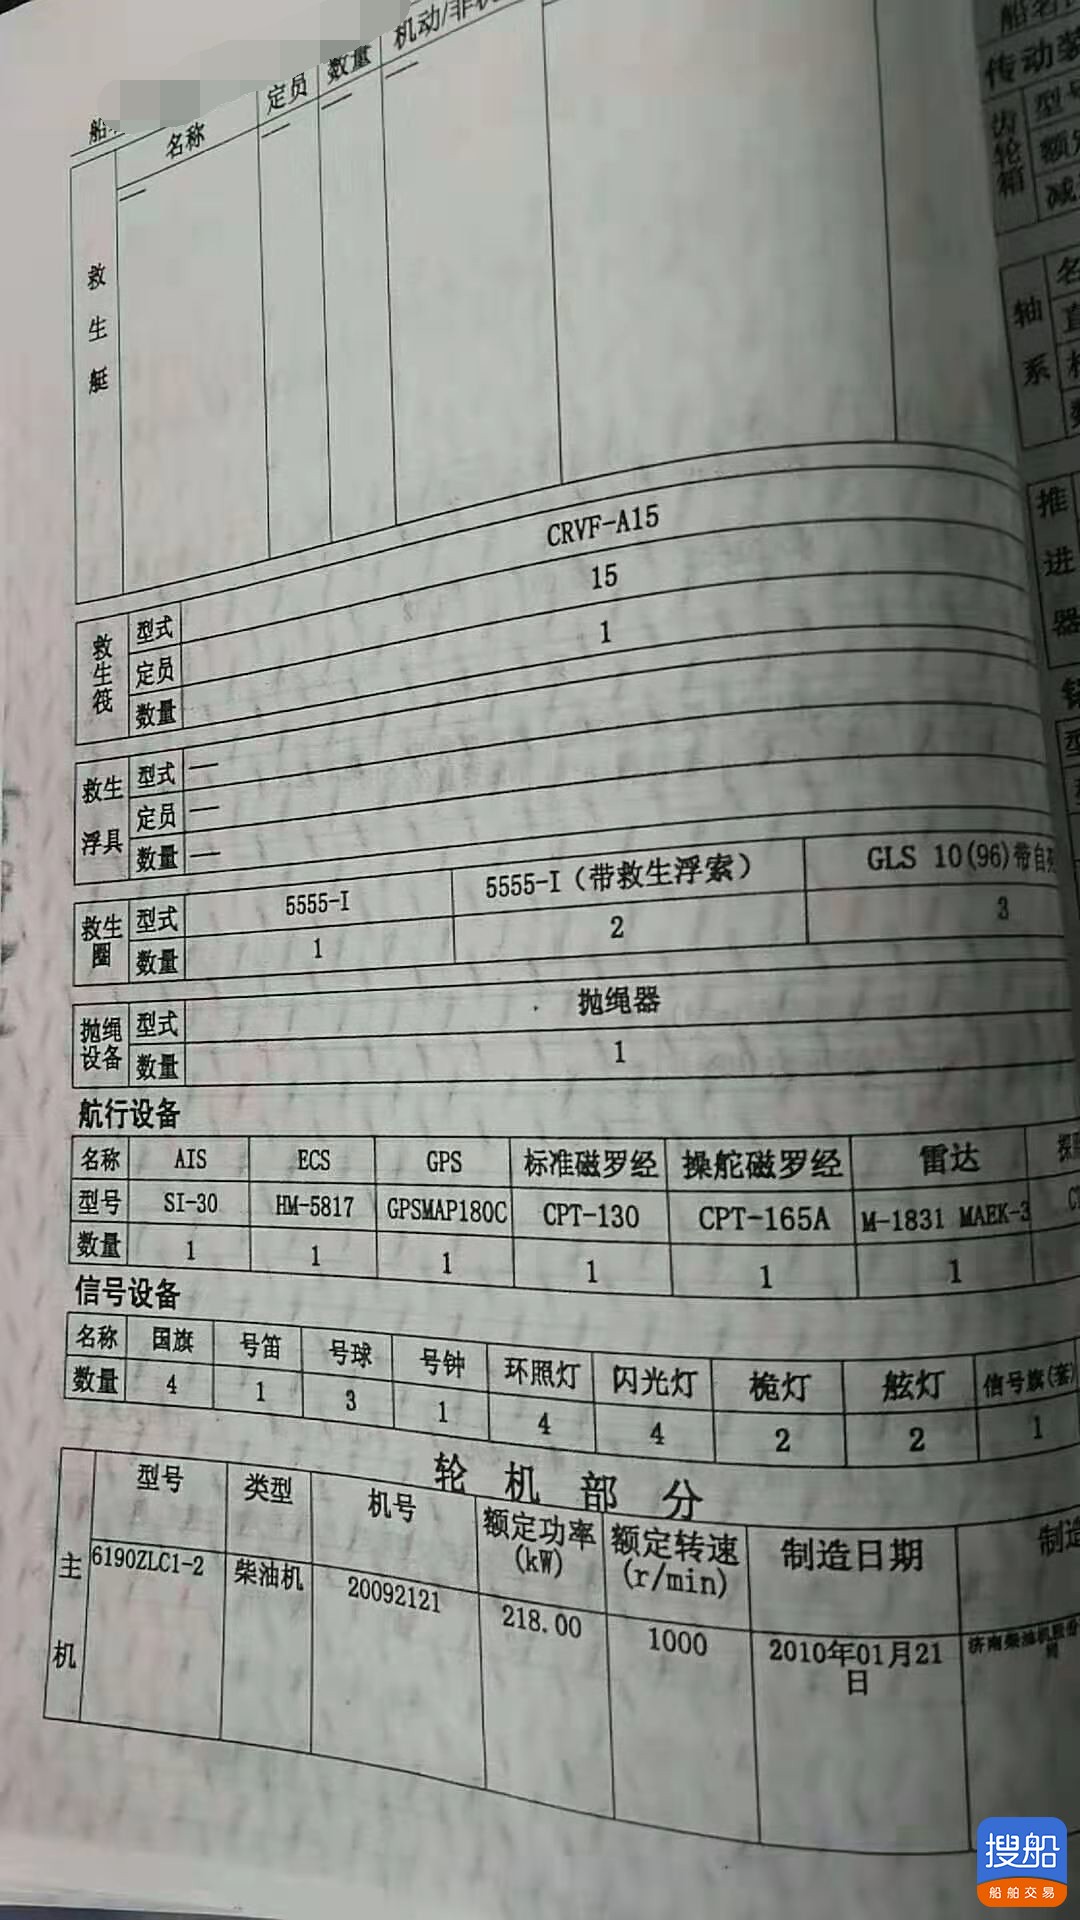 名称 定员 数量 机动/非机
— — — —
救生艇
救生筏
型式 CRVF-A15
定员 15
数量 1
救生浮具
型式 —
定员 —
数量 —
救生圈
型式 5555-I 5555-I(带救生浮索) GLS 10(96)带自
数量 1 2 3
抛绳设备
型式 抛绳器
数量 1
航行设备
名称 AIS ECS GPS 标准磁罗经 操舵磁罗经 雷达
型号 SI-30 HM-5817 GPSMAP180C CPT-130 CPT-165A M-1831 MAEK-3
数量 1 1 1 1 1 1
信号设备
名称 国旗 号笛 号球 号钟 环照灯 闪光灯 桅灯 舷灯 信号旗(套)
数量 4 1 3 1 4 4 2 2 1
轮机部分
主机
型号 类型 机号 额定功率(kW) 额定转速(r/min) 制造日期 制造
6190ZLC1-2 柴油机 20092121 218.00 1000 2010年01月21日 济南柴油机股份
传动装
齿轮箱
型号
额定
减
轴系
推进器
搜船
船舶交易